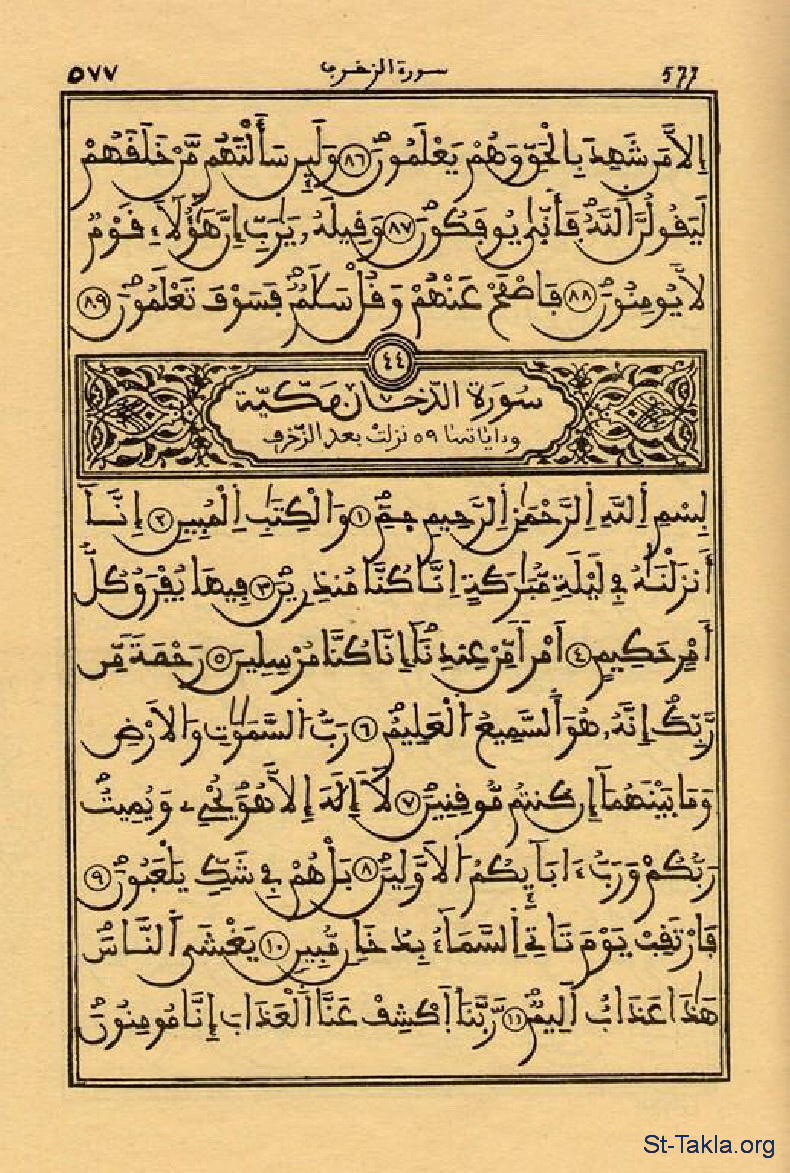 ٥٧٧ سورة الزخرف 577
إِلَّا مَن شَهِدَ بِالْحَقِّ وَهُمْ يَعْلَمُونَ ٨٦ وَلَئِن سَأَلْتَهُم مَّنْ خَلَقَهُمْ
لَيَقُولُنَّ اَللَّهُ فَأَنّٰى يُوفَكُونَ ٨٧ وَقِيلَهُۥ يَٰرَبِّ إِنَّ هَٰٓؤُلَآءِ قَوْمٌ
لَّا يُومِنُونَ ٨٨ فَاصْفَحْ عَنْهُمْ وَقُلْ سَلَٰمٌ فَسَوْفَ تَعْلَمُونَ ٨٩
٤٤
سُورَة الدّخان مَكيّة
وءاياتها ٥٩ نزلت بعد الزّخرف
بِسْمِ اِللَّهِ اِلرَّحْمَٰنِ اِلرَّحِيمِ حمٓ ١ وَالْكِتَٰبِ اِلْمُبِينِ ٢ إِنَّآ
أَنزَلْنَٰهُ فِي لَيْلَةٍ مُّبَٰرَكَةٍ اِنَّا كُنَّا مُنذِرِينَ ٣ فِيهَا يُفْرَقُ كُلُّ
أَمْرٍ حَكِيمٍ ٤ اَمْراً مِّنْ عِندِنَآ إِنَّا كُنَّا مُرْسِلِينَ ٥ رَحْمَةً مِّن
رَّبِّكَ إِنَّهُۥ هُوَ اَلسَّمِيعُ اُلْعَلِيمُ ٦ رَبُّ اُلسَّمَٰوَٰتِ وَالَارْضِ
وَمَا بَيْنَهُمَآ إِن كُنتُم مُّوقِنِينَ ٧ لَآ إِلَٰهَ إِلَّا هُوَ يُحْيِۦ وَيُمِيتُ
رَبُّكُمْ وَرَبُّ ءَابَآئِكُمُ اُلَاوَّلِينَ ٨ بَلْ هُمْ فِي شَكٍّ يَلْعَبُونَ ٩
فَارْتَقِبْ يَوْمَ تَاتِي اِلسَّمَآءُ بِدُخَانٍ مُّبِينٍ ١٠ يَغْشَى اَلنَّاسَ
هَٰذَا عَذَابٌ اَلِيمٌ ١١ رَّبَّنَا اَكْشِفْ عَنَّا اَلْعَذَابَ إِنَّا مُومِنُونَ
St-Takla.org